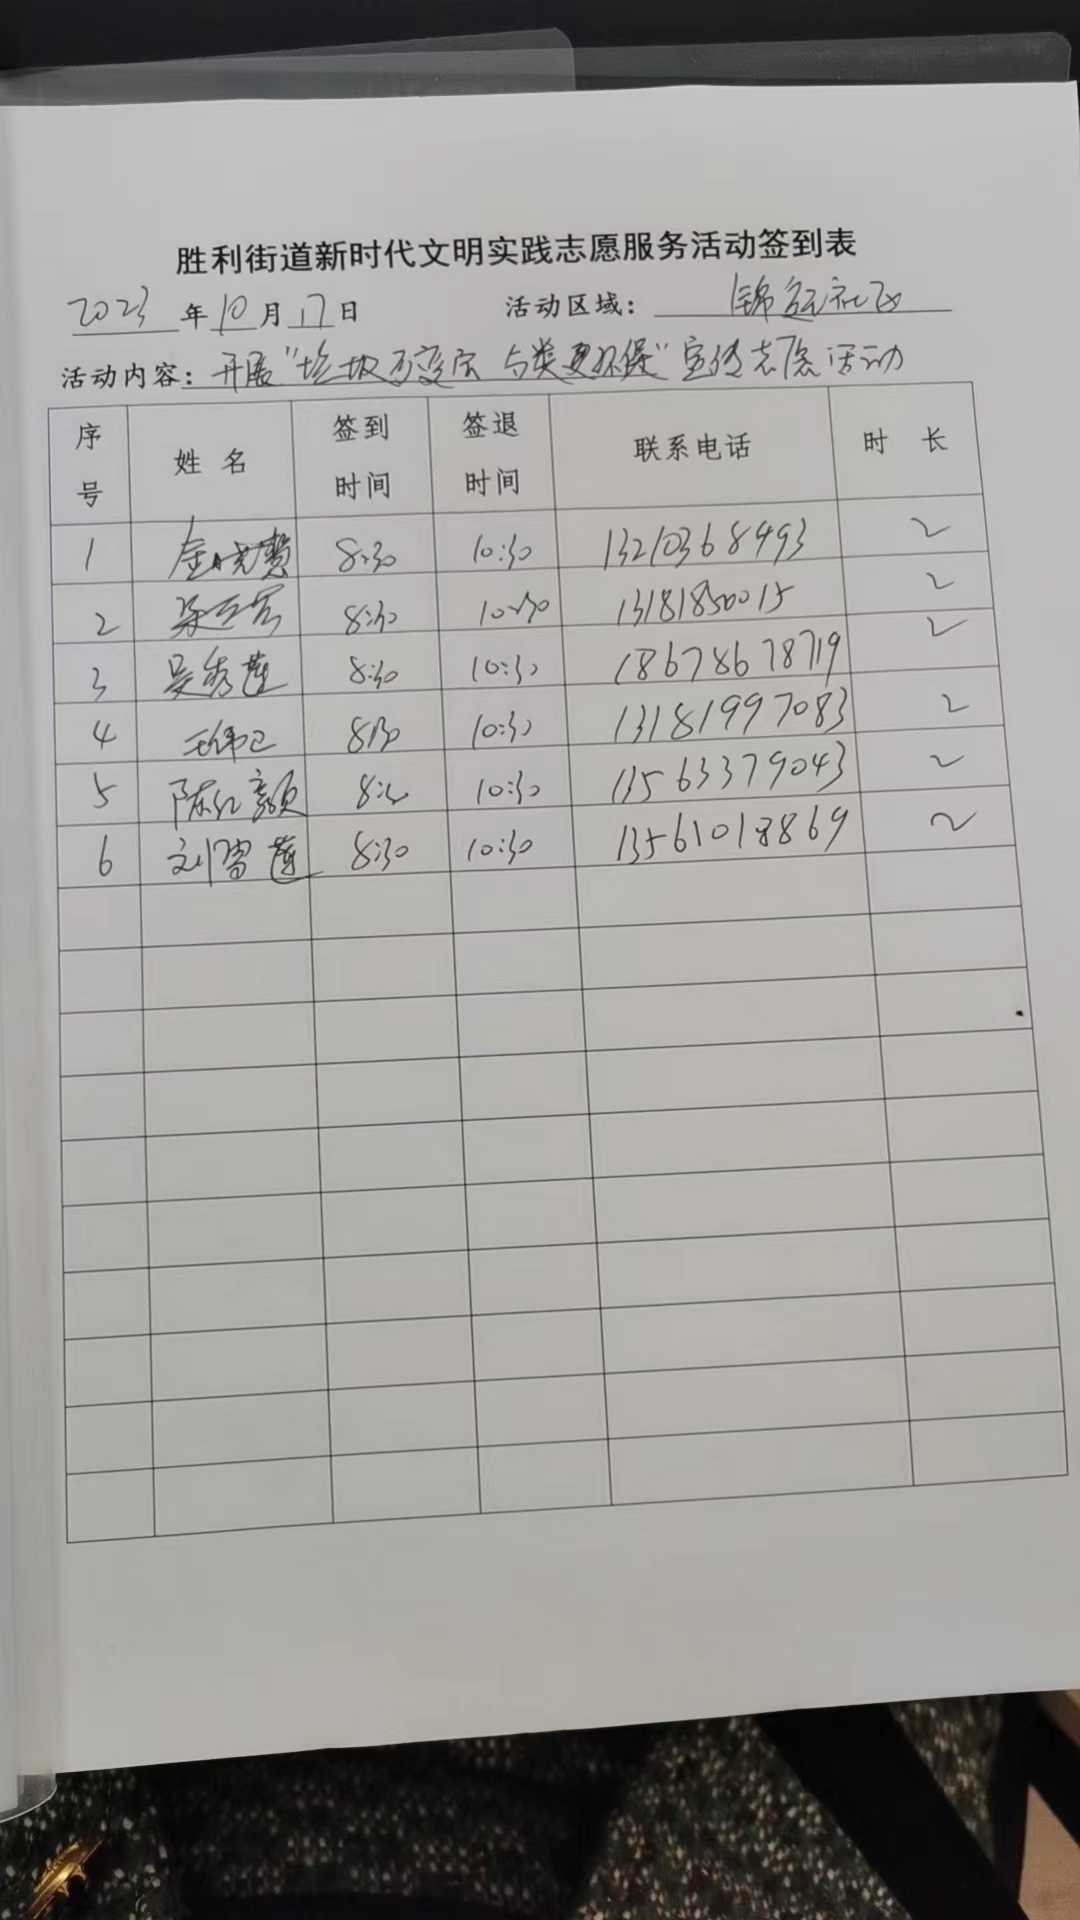 胜利街道新时代文明实践志愿服务活动签到表
2023年10月17日 活动区域：锦苑社区
活动内容：开展“垃圾可变宝 分类更环保”宣传志愿活动
序号 姓名 签到时间 签退时间 联系电话 时长
1 金晓慧 8:30 10:30 13210368993 2
2 8:30 10:30 13181850015 2
3 吴秀莲 8:30 10:30 18678678719 2
4 王伟卫 8:30 10:30 13181997083 2
5 陈红颖 8:30 10:30 13563379043 2
6 刘雪莲 8:30 10:30 13561018869 2